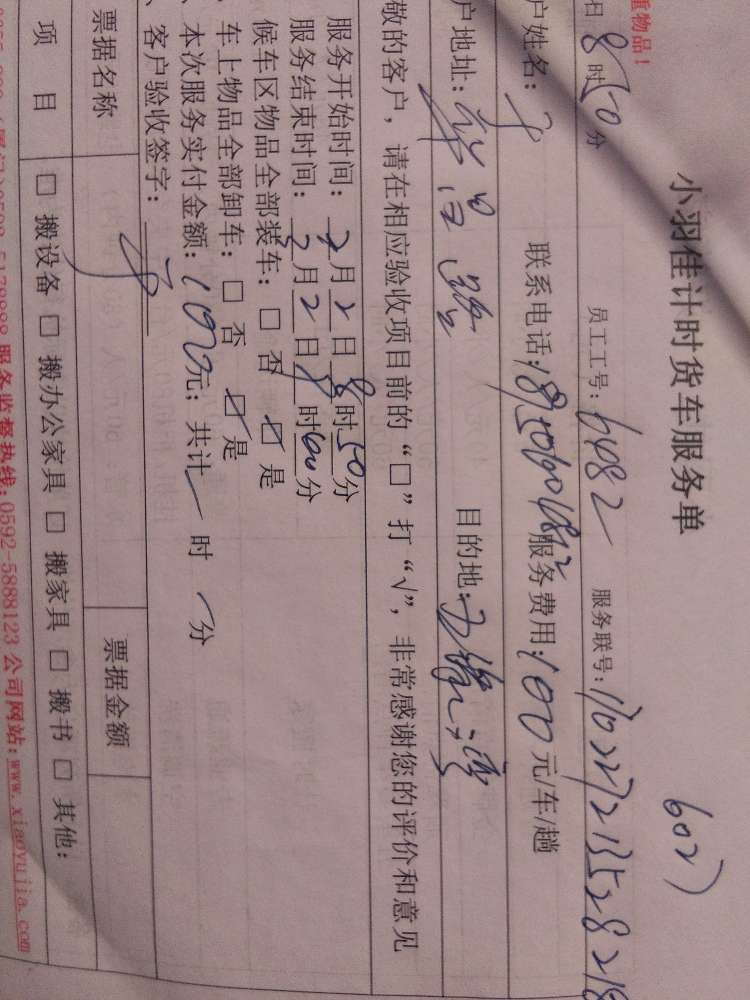 重物品!
小羽佳计时货车服务单
602)
日 8时50分 员工工号: 6482 服务联号:
户姓名: 联系电话: 服务费用: 100元/车/趟
户地址: 目的地:
敬的客户，请在相应验收项目前的“□”打“√”，非常感谢您的评价和意见
服务开始时间: 2月2日8时50分
服务结束时间: 2月2日 时60分
候车区物品全部装车: □ 否 ☑ 是
车上物品全部卸车: □ 否 ☑ 是
、本次服务实付金额: 100元; 共计 时 分
、客户验收签字:
票据名称 票据金额
项 目 □ 搬设备 □ 搬办公家具 □ 搬家具 □ 搬书 □ 其他:
服务监督热线:0592-5888123 公司网站:www.xiaoyujia.com